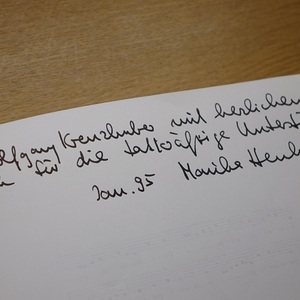 olfgang Kreuzhuber mit herzlichem
für die tatkräftige Unterstü
Jan. 95 Monika Henk